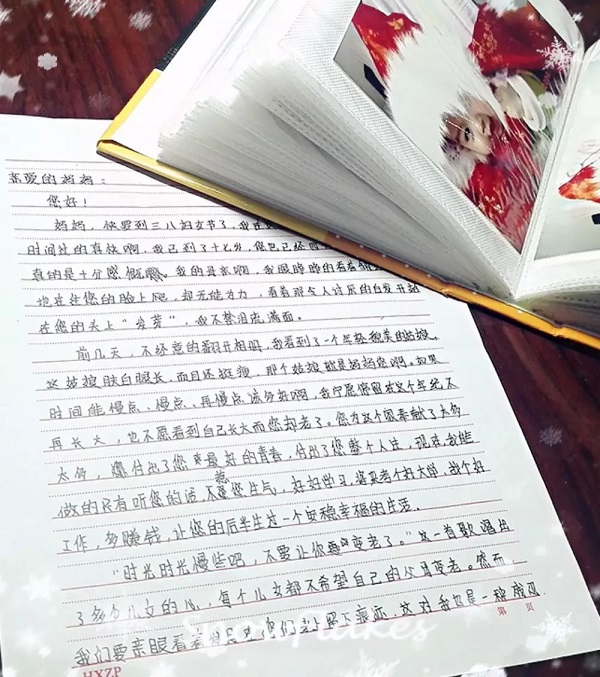 亲爱的妈妈：
您好！
妈妈，快要到三八妇女节了，我在
时间过的真快啊，我已到了十七岁，您也已经
真的是十分感慨。我的母亲啊，我眼睁睁的看着
地在往您的脸上爬，却无能为力，看着那令人讨厌的白发开始
在您的头上“发芽”，我不禁泪流满面。
前几天，不经意的翻开相册，我看到了一个年轻貌美的姑娘。
这姑娘肤白眼长，而且还挺瘦，那个姑娘就是妈妈您啊。如果
时间能慢点、慢点、再慢点该多好啊，我宁愿停留在这个年纪不
再长大，也不愿看到自己长大而您却老了。您为这个家奉献了太多
太多，您付出了您最好的青春，付出了您整个人生，现在我能
做的只有听您的话，不惹您生气，好好学习，将来考个好大学，找个好
工作，多赚钱，让您的后半生过一个安稳幸福的生活。
“时光时光慢些吧，不要让你再变老了。”这一首歌唱出
了多少儿女的心，每个儿女都不希望自己的父母变老。然而
我们要亲眼看着 留下痕迹，这对我也是一种
第 页
HXZP
Snowflakes